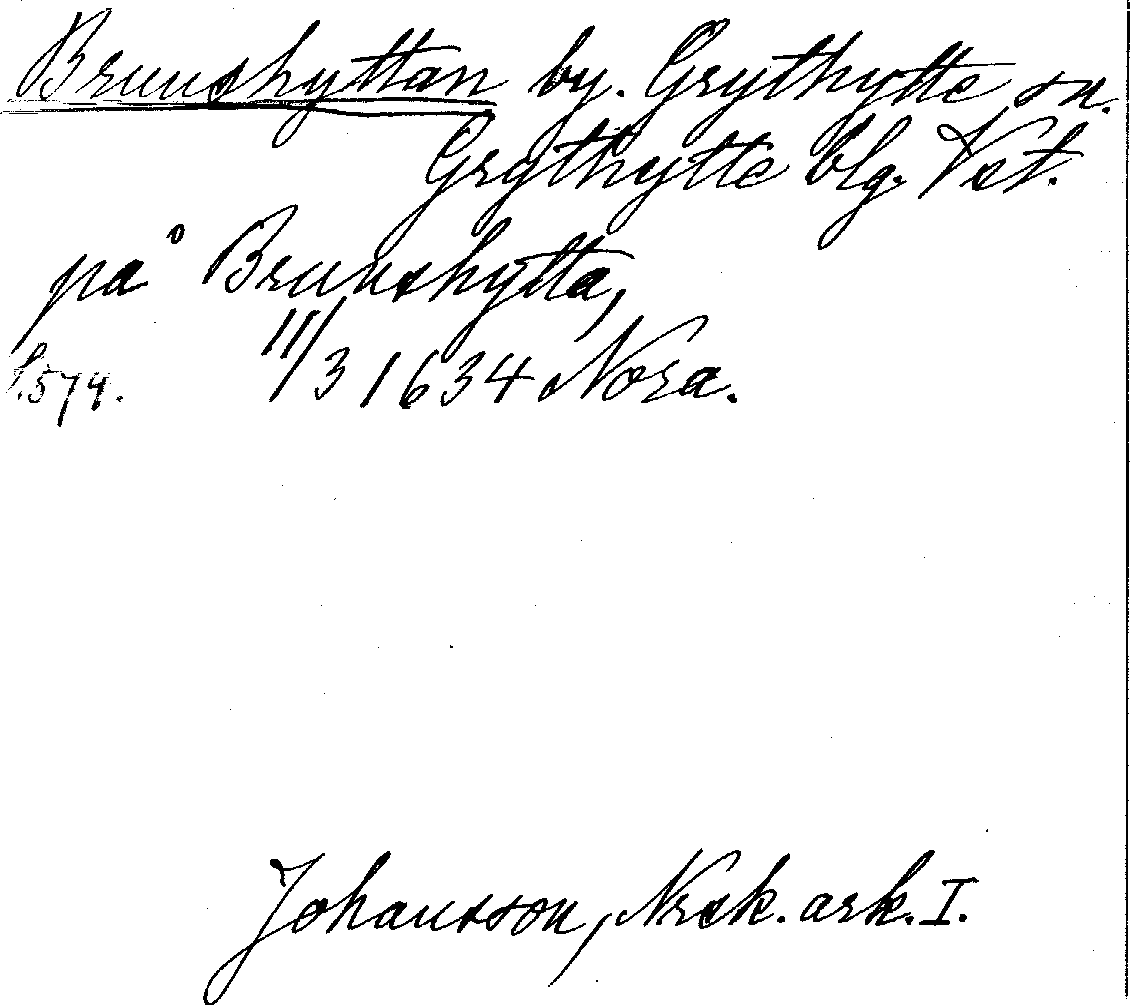 Brunshyttan by. Grythytte sn.
Grythytte blg. Vst.
på Brunshytta,
11/3 1634 Nora.
s. 574.
Johansson, Nrsk. ark. I.